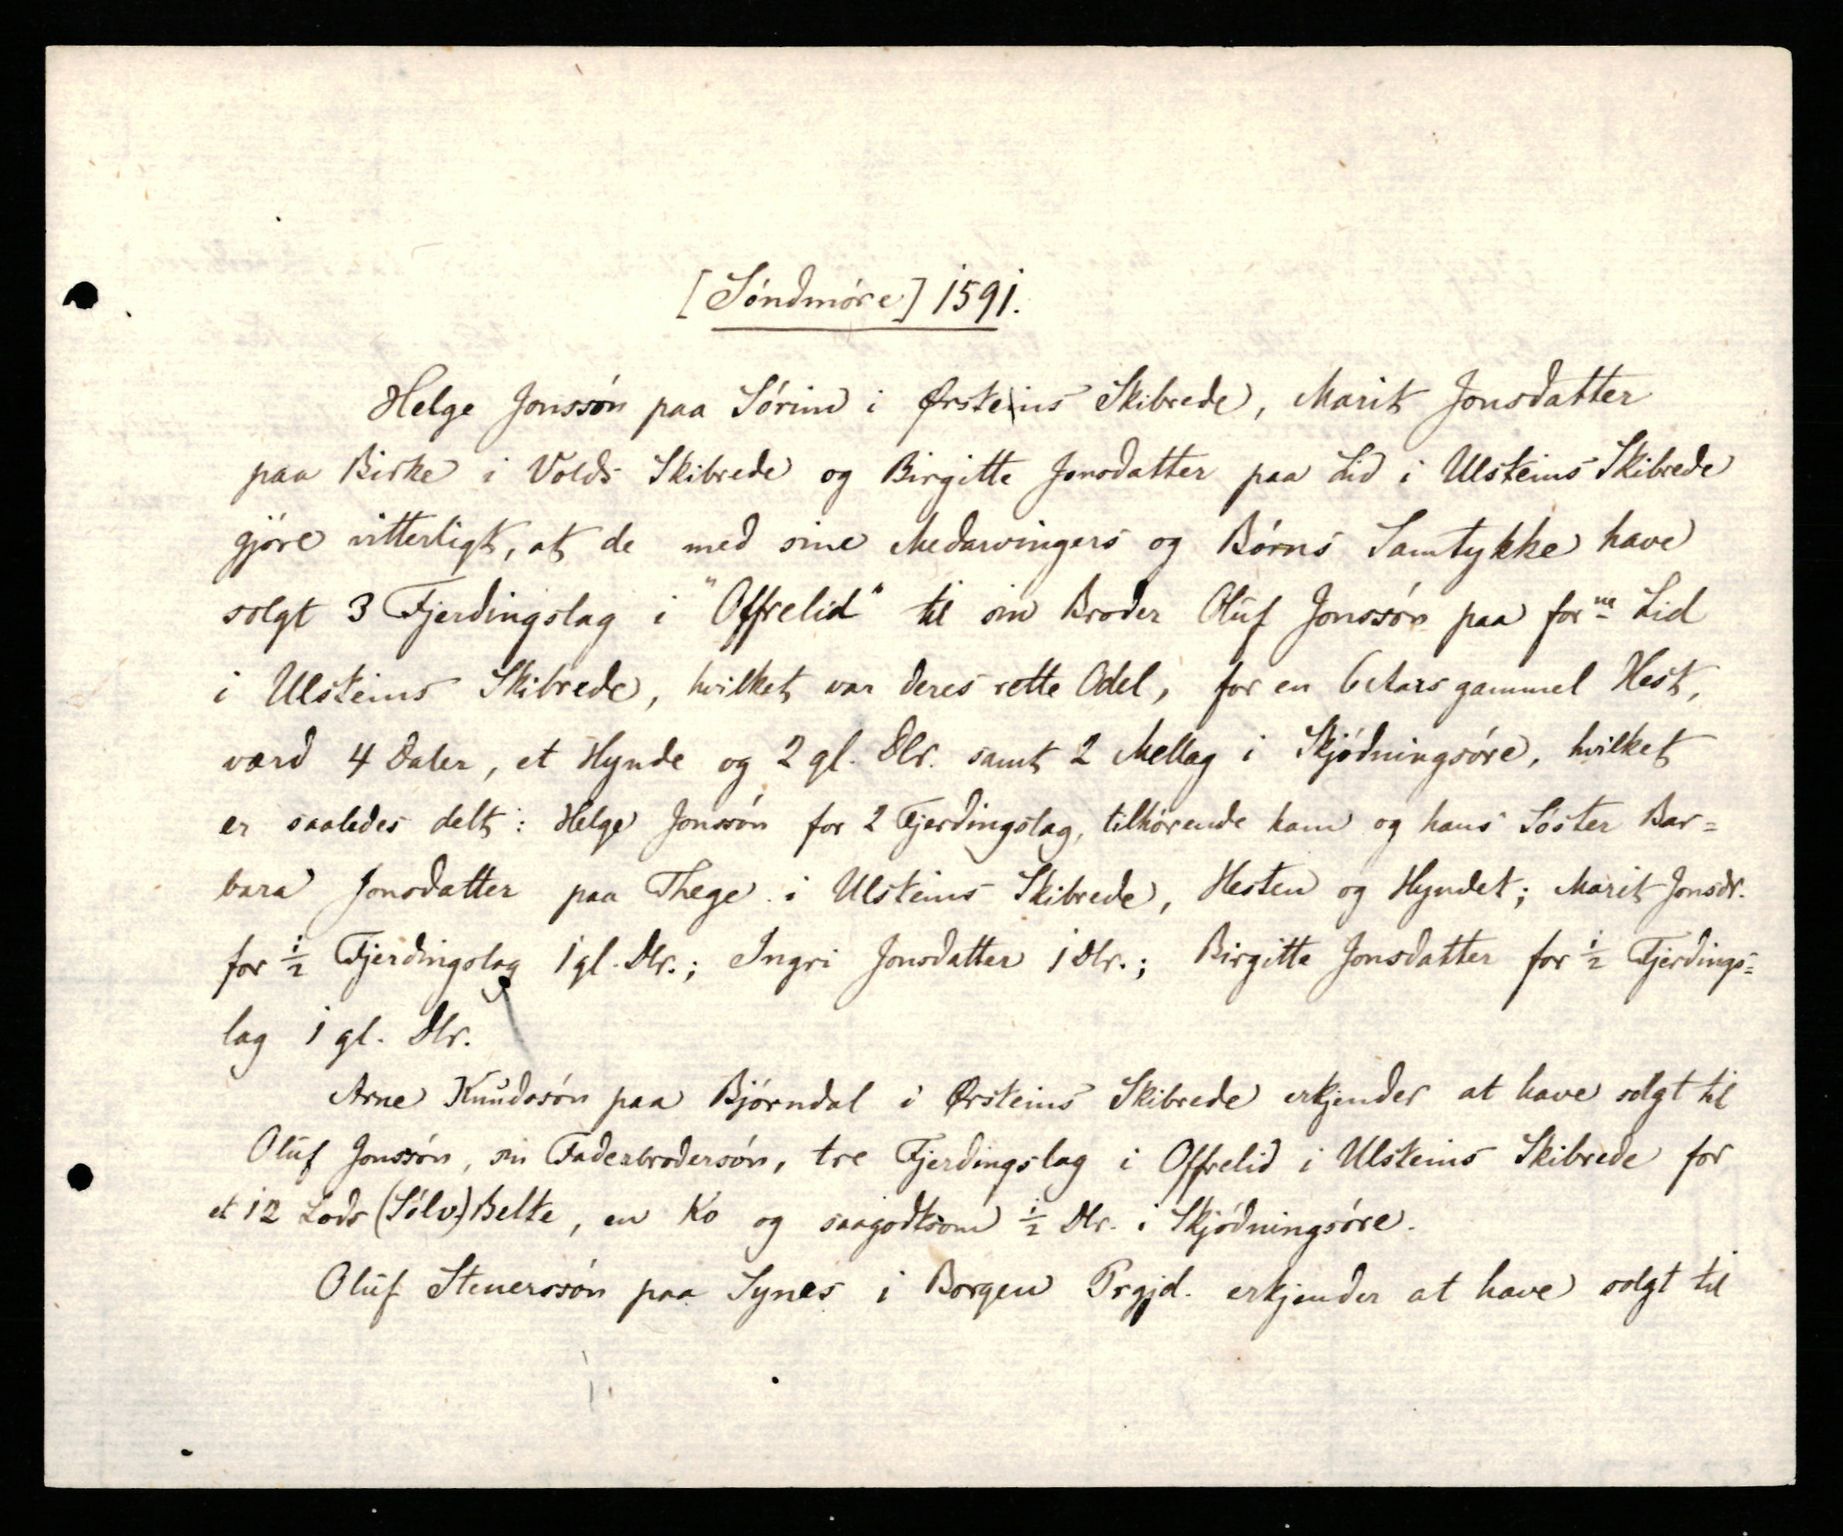 [Söndmöre] 1591.
Helge Jonssön paa Sörim i Ørsteins Skibrede, Marit Jonsdatter
paa Birke i Volds Skibrede og Birgitte Jonsdatter paa Lid i Ulsteins Skibrede
gjöre vitterligt, at de med sine Medarvingers og Börns Samtykke have
solgt 3 Fjerdingslag i "Offrelid" til sin Broder Oluf Jonssön paa forne Lid
i Ulsteins Skibrede, hvilket var deres rette Odel, for en 6 Aars gammel Hest,
værd 4 Daler, et Hynde og 2 gl. Dlr. samt 2 Mellag i Skjödningsöre, hvilket
er saaledes delt: Helge Jonssön for 2 Fjerdingslag, tilhörende ham og hans Söster Bar=
bara Jonsdatter paa Thege i Ulsteins Skibrede, Hesten og Hyndet; Marit Jonsdr.
for ½ Fjerdingslag 1 gl. Dlr.; Ingri Jonsdatter 1 Dlr.; Birgitte Jonsdatter for ½ Fjerdings=
lag 1 gl. Dlr.
Arne Knudssön paa Bjørndal i Ørsteins Skibrede erkjender at have solgt til
Oluf Jonssön, sin Faderbrodersön, tre Fjerdingslag i Offrelid i Ulsteins Skibrede for
et 12 Lods (Sölv-) Belte, en Ko og saagodtsom ½ Dlr. i Skjödningsöre.
Oluf Stenerssön paa Synes i Borgen Prgjd. erkjender at have solgt til